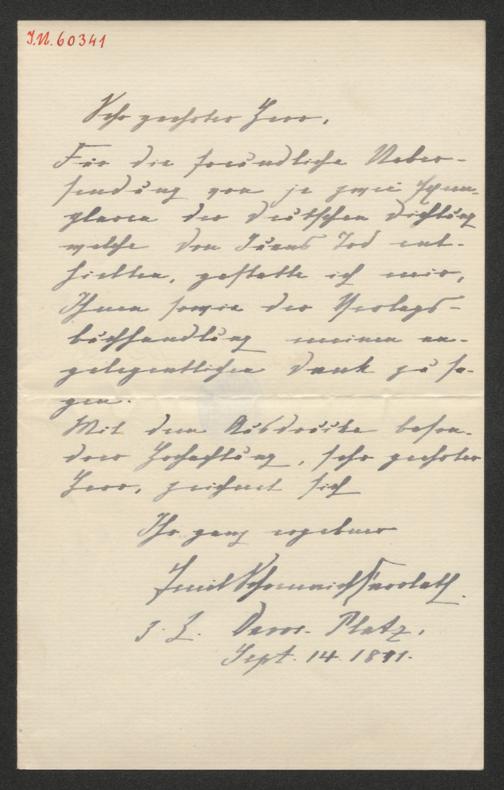 I.N. 60341
Sehr geehrter Herr,
Für die freundliche Ueber-
sendung von je zwei Exem-
plaren der Deutschen Dichtung
welche Don Juans Tod ent-
hielten, gestatte ich mir,
Ihnen sowie der Verlags-
buchhandlung meinen an-
gelegentlichen Dank zu sa-
gen.
Mit dem Ausdrucke beson-
drer Hochachtung, sehr geehrter
Herr, zeichnet sich
Ihr ganz ergebner
Prinz Schoenaich-Carolath.
z. Z. Davos-Platz,
Sept. 14. 1891.